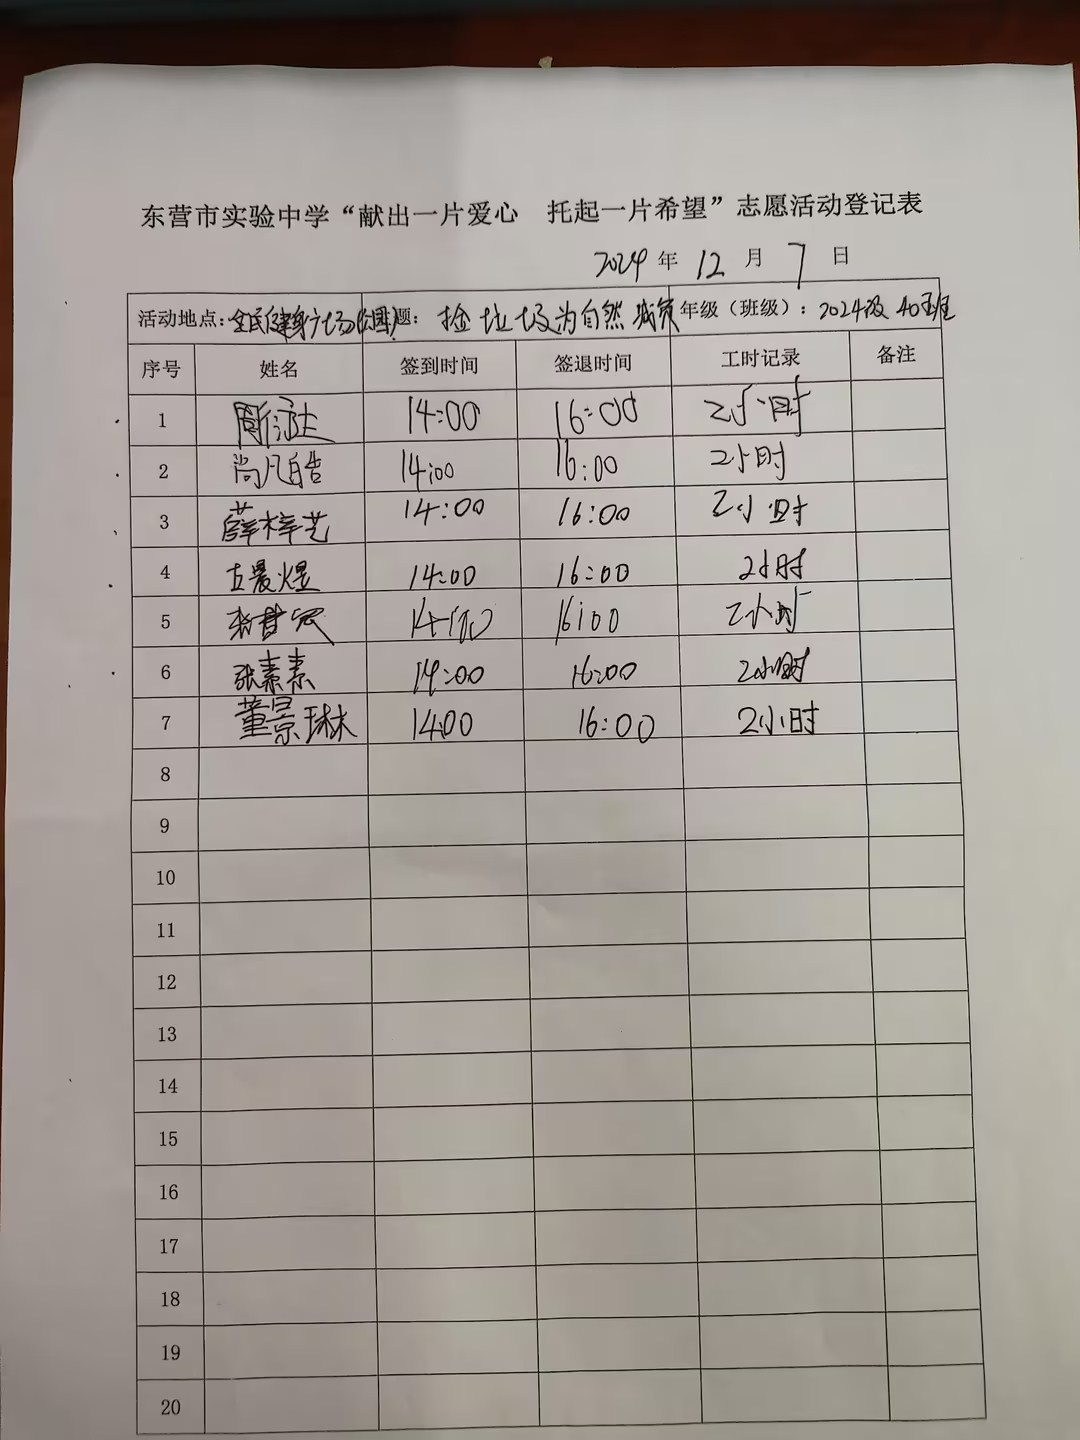 东营市实验中学“献出一片爱心 托起一片希望”志愿活动登记表
2024 年 12 月 7 日
活动地点：全民健身广场(公园) 题：捡垃圾为自然减负 年级（班级）：2024级 40班
序号 姓名 签到时间 签退时间 工时记录 备注
1 14:00 16:00 2小时
2 尚凡皓 14:00 16:00 2小时
3 薛梓艺 14:00 16:00 2小时
4 晨煜 14:00 16:00 2小时
5 14:00 16:00 2小时
6 张素素 14:00 16:00 2小时
7 董景琳 14:00 16:00 2小时
8
9
10
11
12
13
14
15
16
17
18
19
20